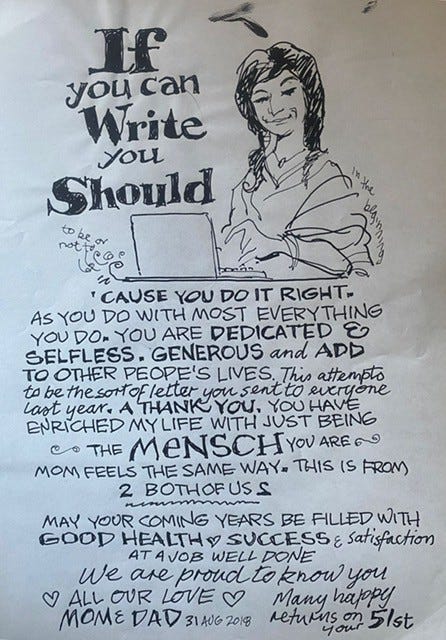 If
you can
Write
you
Should
to be or
not to
in the
beginning
'CAUSE YOU DO IT RIGHT.
AS YOU DO WITH MOST EVERYTHING
YOU DO. YOU ARE DEDICATED &
SELFLESS. GENEROUS and ADD
TO OTHER PEOPE'S LIVES. This attempts
to be the sort of letter you sent to everyone
last year. A THANK YOU. YOU HAVE
ENRICHED MY LIFE WITH JUST BEING
THE MENSCH YOU ARE
MOM FEELS THE SAME WAY. THIS IS FROM
2 BOTH OF US 2
MAY YOUR COMING YEARS BE FILLED WITH
GOOD HEALTH ♥ SUCCESS & satisfaction
AT A JOB WELL DONE
We are proud to know you
♡ ALL OUR LOVE ♡
MOM & DAD 31 AUG 2018
Many happy
returns on
your 51st